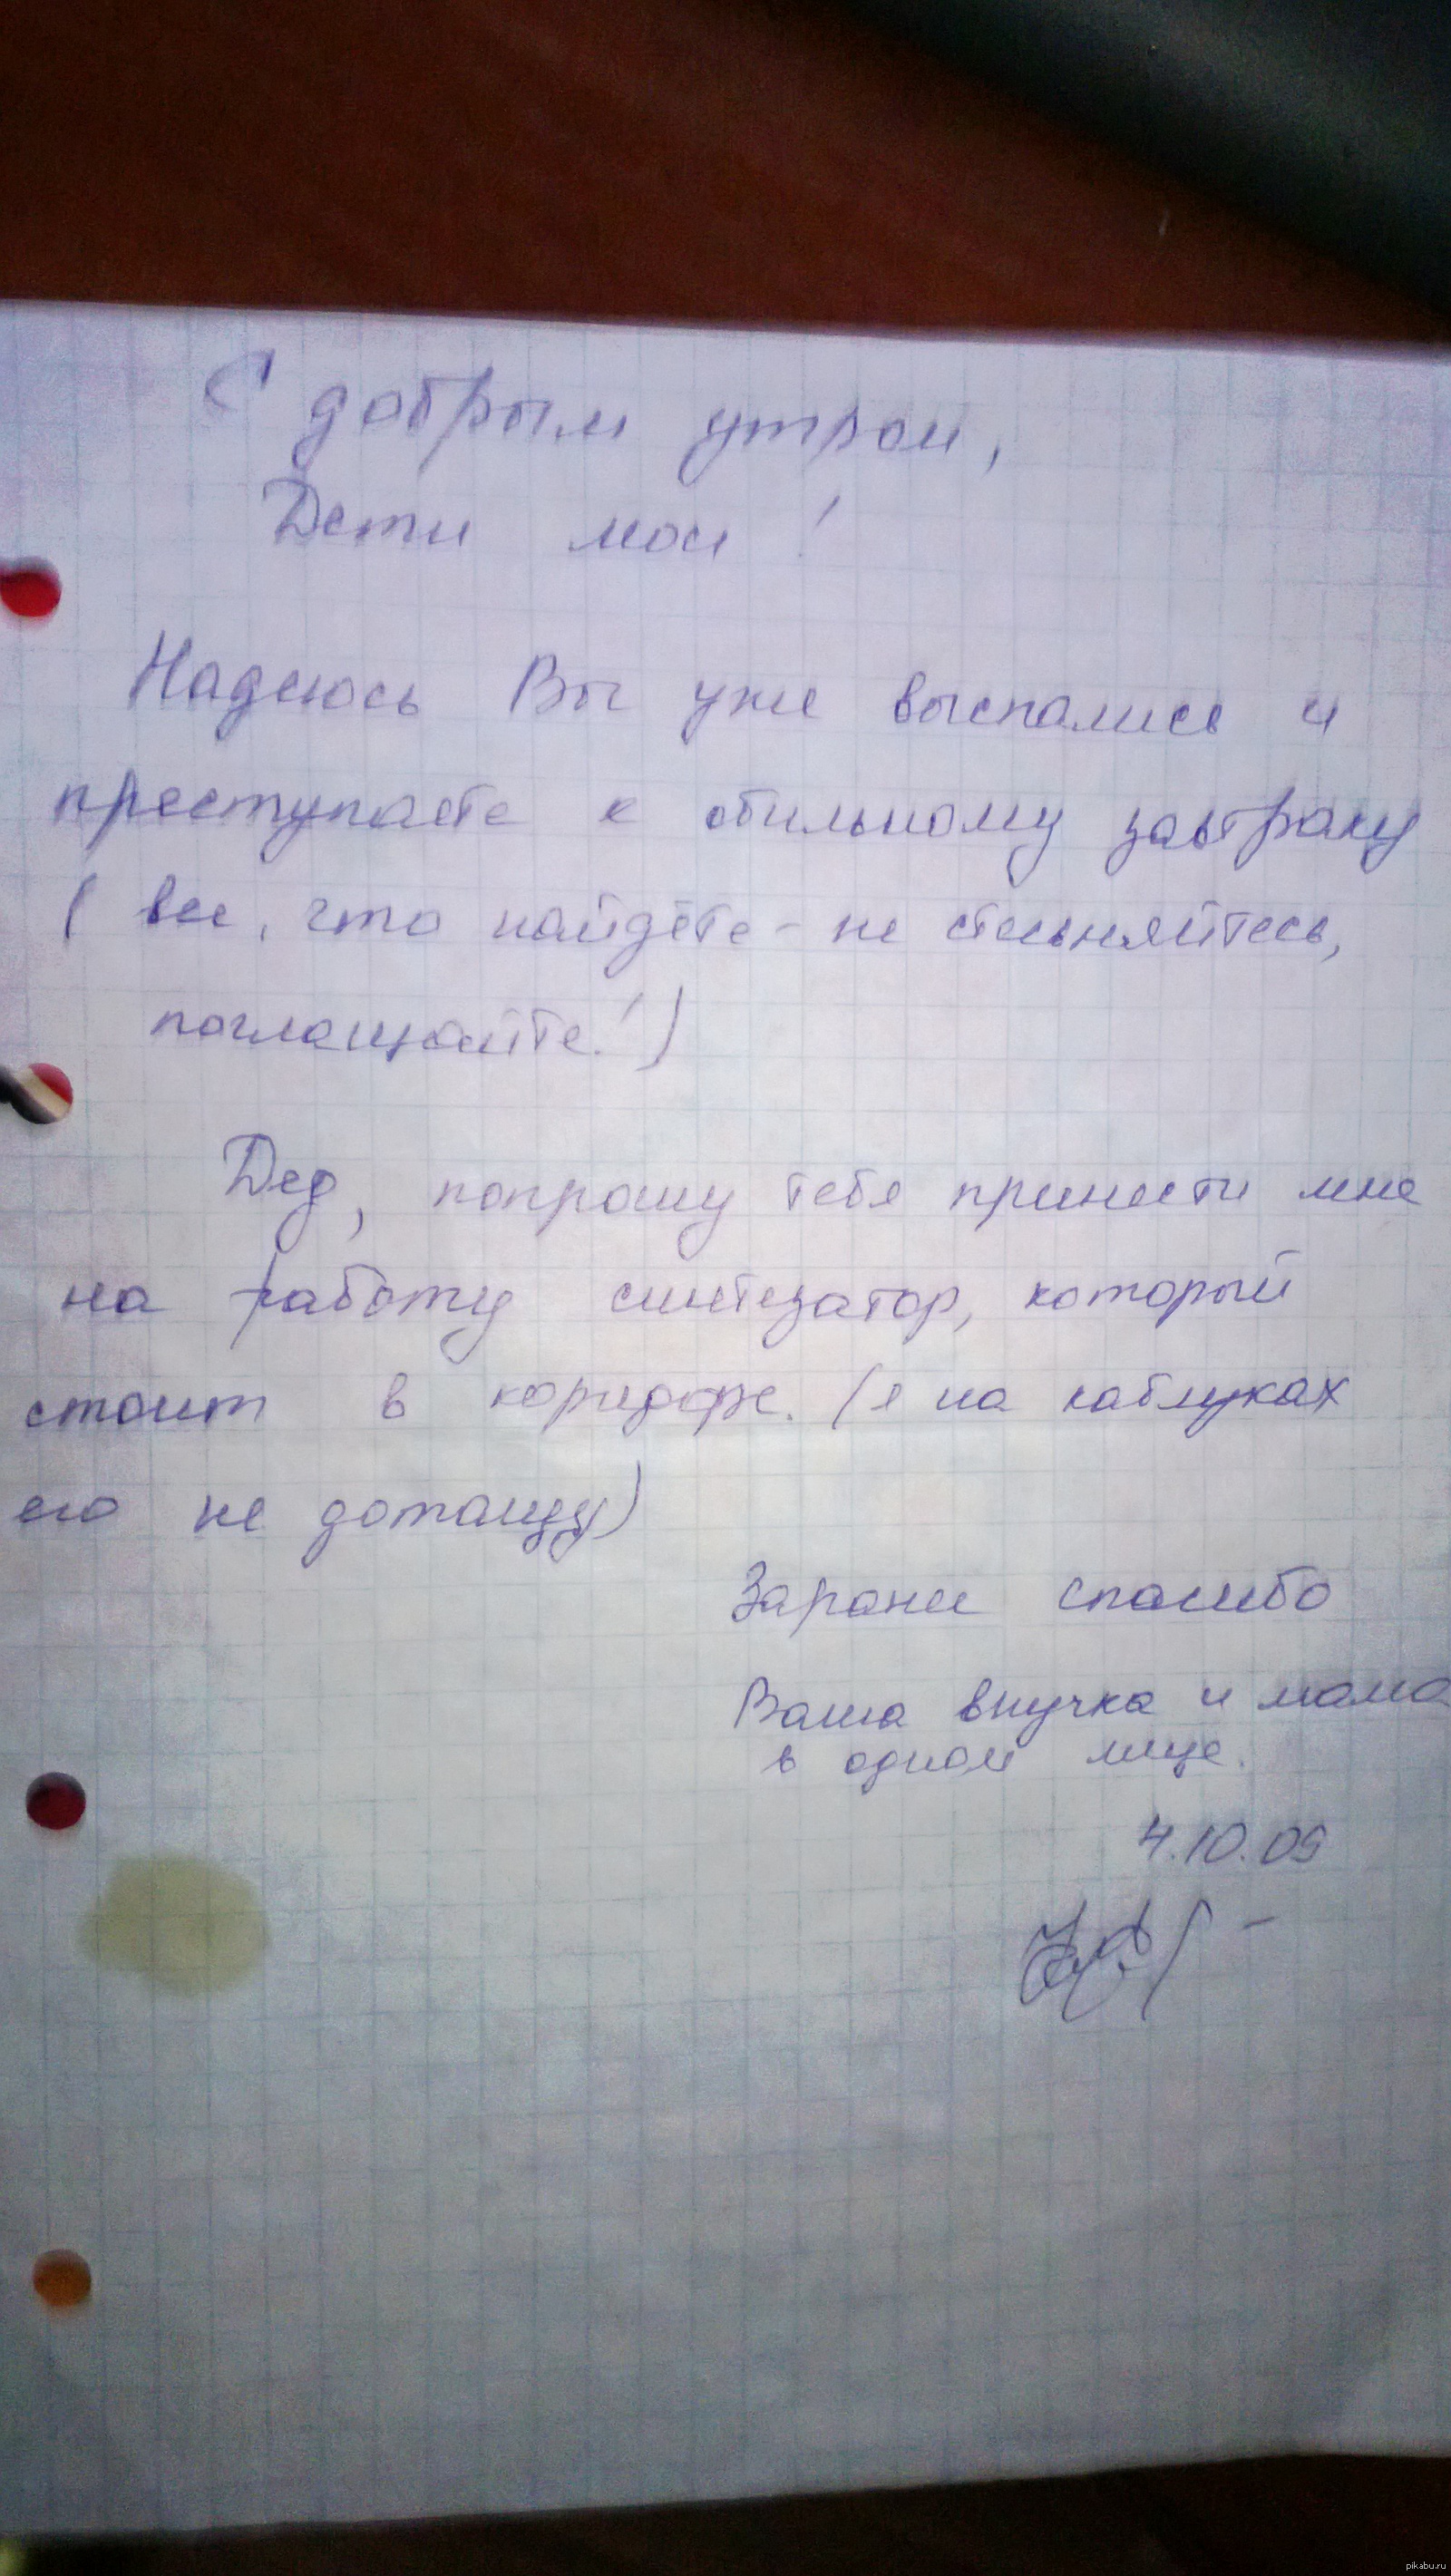 С добрым утром,
Дети мои!
Надеюсь Вы уже выспались и
преступаете к обильному завтраку
( все, что найдёте - не стесьняйтесь,
поглащайте! )
Дед, попрошу тебя принести мне
на работу синтезатор, который
стоит в коридоре. (я на каблуках
его не дотащу)
Заранее спасибо
Ваша внучка и мама
в одном лице.
4.10.09
pikabu.ru